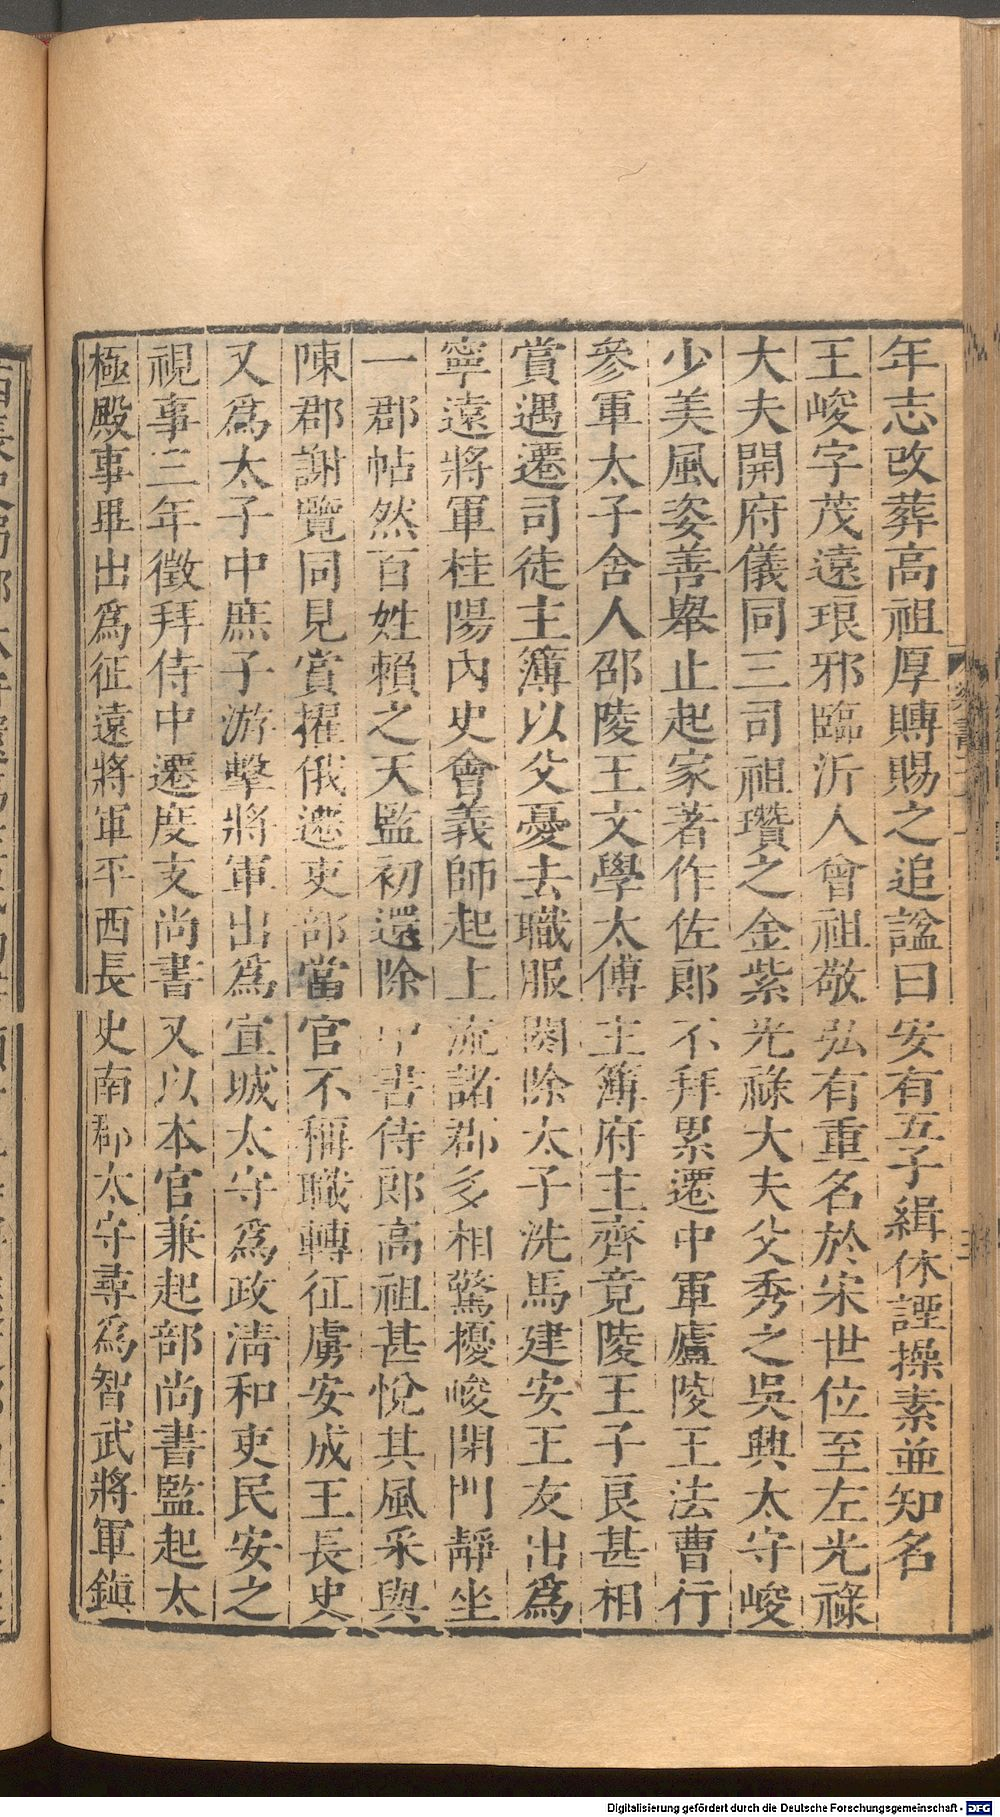 年志改葬高祖厚賻賜之追諡曰安有五子緝休諲操素並知名
王峻字茂遠琅邪臨沂人曾祖敬弘有重名於宋世位至左光祿
大夫開府儀同三司祖瓚之金紫光祿大夫父秀之吳興太守峻
少美風姿善舉止起家著作佐郎不拜累遷中軍廬陵王法曹行
參軍太子舍人邵陵王文學太傅主簿府主齊竟陵王子良甚相
賞遇遷司徒主簿以父憂去職服闋除太子洗馬建安王友出爲
寧遠將軍桂陽內史會義師起上流諸郡多相驚擾峻閉門靜坐
一郡帖然百姓賴之天監初還除中書侍郎高祖甚悅其風采與
陳郡謝覽同見賞擢俄遷吏部當官不稱職轉征虜安成王長史
又爲太子中庶子游擊將軍出爲宣城太守爲政淸和吏民安之
視事三年徵拜侍中遷度支尚書又以本官兼起部尚書監起太
極殿事畢出爲征遠將軍平西長史南郡太守尋爲智武將軍鎭
Digitalisierung gefördert durch die Deutsche Forschungsgemeinschaft - DFG